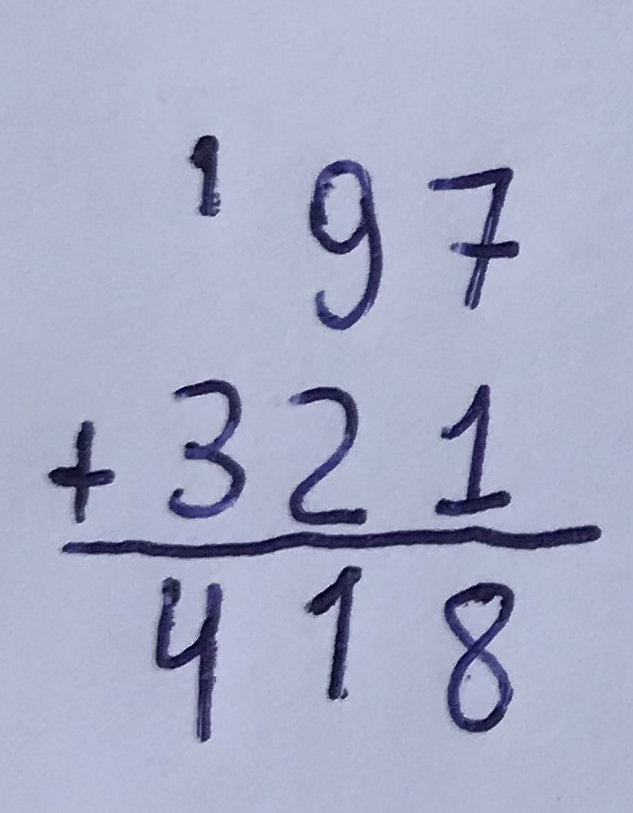 ¹ 97
+ 321
418